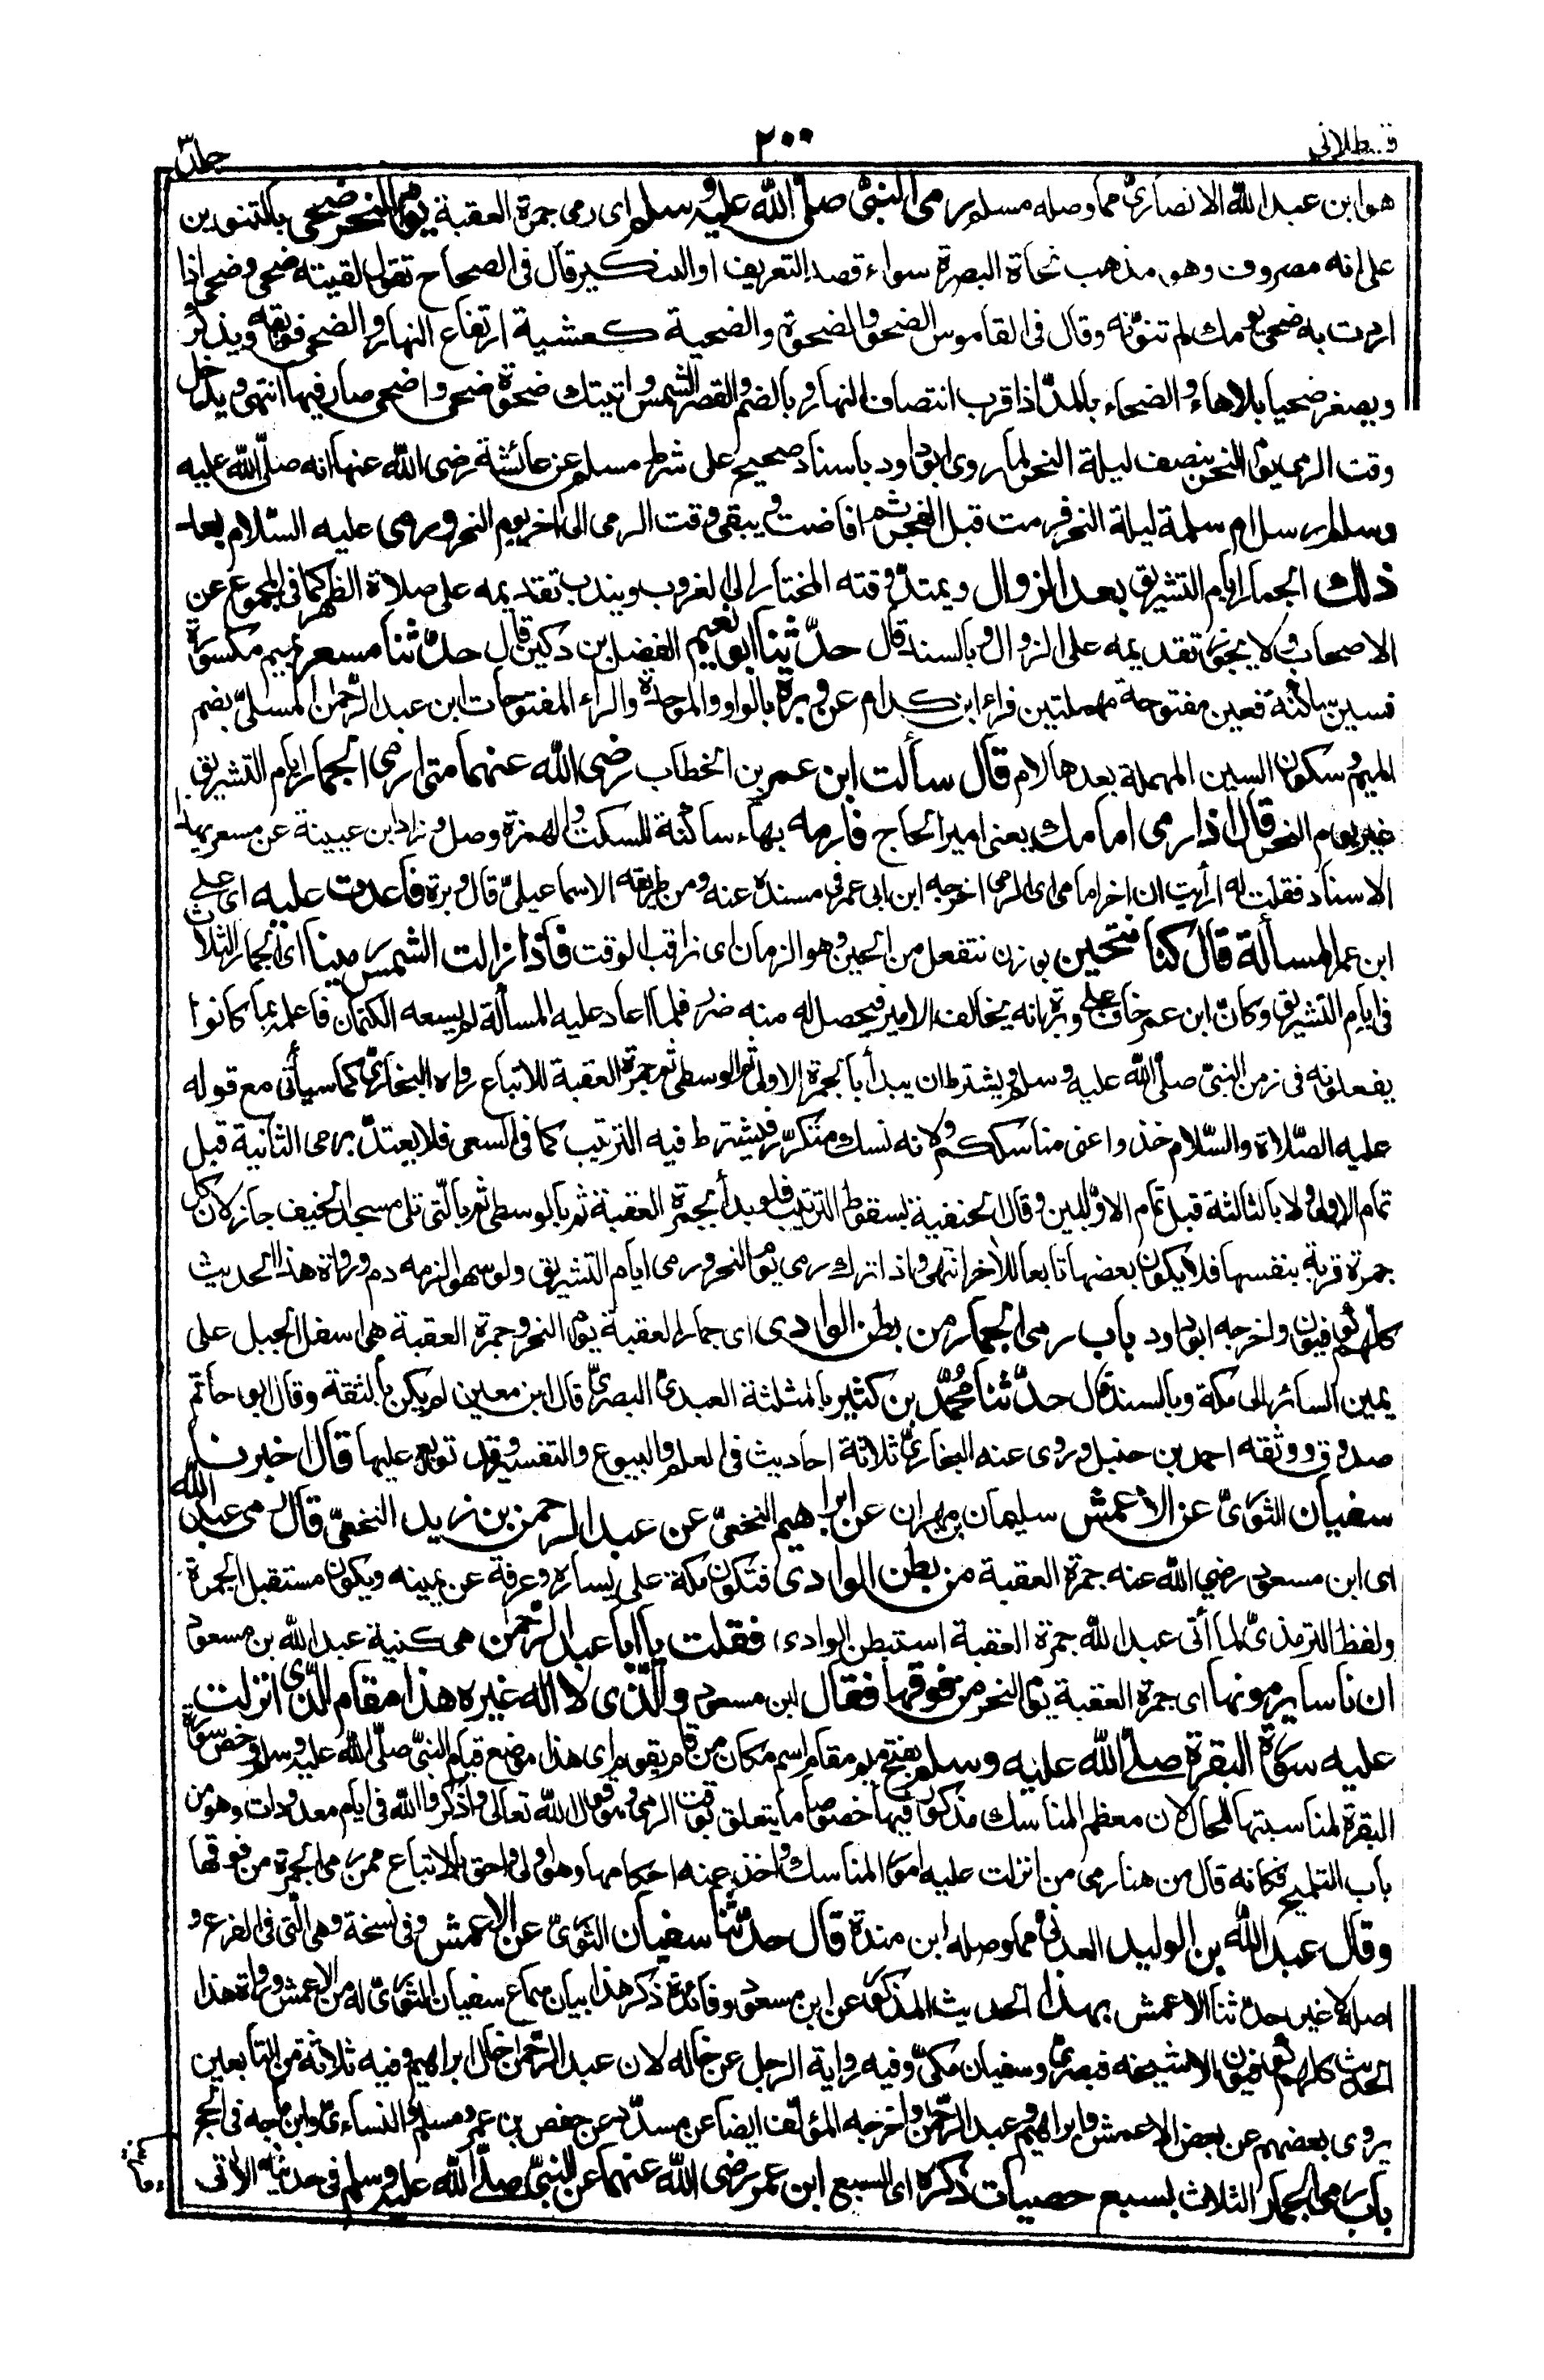 قسطلاني ٢٠٠ جلد ٣
هو ابن عبد الله الانصاري مما وصله مسلم رمى النبي صلى الله عليه وسلم اى رمى جمرة العقبة يوم النحر ضحى بالتنوين
على انه مصروف وهو مذهب نحاة البصرة سواء قصد التعريف او التنكير قال فى الصحاح تقول لقيته ضحى وضحى اذا
اردت به ضحى يومك لم تنونه وقال فى القاموس الضحو والضحوة والضحية كعشية ارتفاع النهار والضحى فويقه ويذكر
ويصغر ضحيا بلا هاء والضحاء بالمد اذا قرب انتصاف النهار وبالضم والقصر الشمس واتيتك ضحوة ضحى واضحى صار فيها انتهى ويدخل
وقت الرمى يوم النحر بنصف ليلة النحر لما روى ابو داود باسناد صحيح على شرط مسلم عن عائشة رضى الله عنها انه صلى الله عليه
وسلم ارسل ام سلمة ليلة النحر فرمت قبل الفجر ثم افاضت ويبقى وقت الرمى الى اخر يوم النحر ورمى عليه السلام بعد
ذلك الجمار ايام التشريق بعد الزوال ويمتد وقته المختار الى الغروب ويندب تقديمه على صلاة الظهر كما فى المجموع عن
الاصحاب ولا يجوز تقديمه على الزوال وبالسند قال حدثنا ابو نعيم الفضل بن دكين قال حدثنا مسعر بميم مكسورة
فسين ساكنة فعين مفتوحة مهملتين فراء ابن كدام عن وبرة بالواو والموحدة والراء المفتوحات ابن عبد الرحمن المسلى بضم
الميم وسكون السين المهملة بعدها لام قال سألت ابن عمر بن الخطاب رضى الله عنهما متى ارمى الجمار ايام التشريق
غير يوم النحر قال اذا رمى امامك يعنى امير الحاج فارمه بهاء ساكنة للسكت والهمزة وصل وزاد ابن عيينة عن مسعر بهذا
الاسناد فقلت له ارأيت ان اخر امامى اى الرمى اخرجه ابن ابى عمر فى مسنده عنه ومن طريقه الاسماعيلى قال وبرة فاعدت عليه اى على
ابن عمر المسألة قال كنا نتحين بوزن نتفعل من الحين وهو الزمان اى نراقب الوقت فاذا زالت الشمس رمينا اى الجمار الثلاث
فى ايام التشريق وكان ابن عمر خاف على وبرة انه يخالف الامير فيحصل له منه ضرر فلما اعاد عليه المسألة لم يسعه الكتمان فاعلمه بما كانوا
يفعلونه فى زمن النبى صلى الله عليه وسلم ويشترط ان يبدأ بالجمرة الاولى ثم الوسطى ثم جمرة العقبة للاتباع رواه البخارى كما سيأتى مع قوله
عليه الصلاة والسلام خذوا عنى مناسككم ولانه نسك متكرر فيشترط فيه الترتيب كما فى السعى فلا يعتد برمى الثانية قبل
تمام الاولى ولا بالثالثة قبل تمام الاوليين وقال الحنفية بسقوط الترتيب فلو بدأ بجمرة العقبة ثم بالوسطى ثم بالتى تلى مسجد الخيف جاز لان كل
جمرة قربة بنفسها فلا يكون بعضها تابعا للاخر انتهى واذا ترك رمى يوم النحر ورمى ايام التشريق ولو سهوا لزمه دم ورواة هذا الحديث
كلهم كوفيون واخرجه ابو داود باب رمى الجمار من بطن الوادى اى جمار العقبة يوم النحر وجمرة العقبة هى اسفل الجبل على
يمين السائر الى مكة وبالسند قال حدثنا محمد بن كثير بالمثلثة العبدى البصرى قال ابن معين لم يكن بالثقة وقال ابو حاتم
صدوق ووثقه احمد بن حنبل وروى عنه البخارى ثلاثة احاديث فى العلم والبيوع والتفسير وقد توبع عليها قال اخبرنا
سفيان الثورى عن الاعمش سليمان بن مهران عن ابراهيم النخعى عن عبد الرحمن بن يزيد النخعى قال رمى عبد الله
اى ابن مسعود رضي الله عنه جمرة العقبة من بطن الوادى فتكون مكة على يساره وعرفة عن يمينه ويكون مستقبل الجمرة
ولفظ الترمذى لما أتى عبد الله جمرة العقبة استبطن الوادى فقلت يا ابا عبد الرحمن هى كنية عبد الله بن مسعود
ان ناسا يرمونها اى جمرة العقبة يوم النحر من فوقها فقال ابن مسعود والذى لا اله غيره هذا مقام الذى انزلت
عليه سورة البقرة صلى الله عليه وسلم بفتح ميم مقام اسم مكان من قام يقوم اى هذا موضع قيام النبى صلى الله عليه وسلم وخص سورة
البقرة لمناسبتها للحال لان معظم المناسك مذكور فيها خصوصا ما يتعلق بوقت الرمى وهو قول الله تعالى واذكروا الله فى ايام معدودات وهو من
باب التلميح فكانه قال من هنا رمى من انزلت عليه امور المناسك واخذ عنه احكامها وهو اولى واحق بالاتباع ممن رمى الجمرة من فوقها
وقال عبد الله بن الوليد العدنى مما وصله ابن مندة قال حدثنا سفيان الثورى عن الاعمش وفى نسخة وهى التى فى الفرع و
اصله لا غير حدثنا الاعمش بهذا الحديث المذكور عن ابن مسعود وفائدة ذكر هذا بيان سماع سفيان الثورى له من الاعمش ورواة هذا
الحديث كلهم كوفيون الا شيخه فبصرى وسفيان مكى وفيه رواية الرجل عن خاله لان عبد الرحمن خال ابراهيم وفيه ثلاثة من التابعين
يروى بعضهم عن بعض الاعمش وابراهيم وعبد الرحمن واخرجه المؤلف ايضا عن مسدد وعن حفص بن عمر ومسلم والنساءى وابن ماجه فى الحج
باب رمى الجمار الثلاث بسبع حصيات ذكره اى السبع ابن عمر رضى الله عنهما عن النبى صلى الله عليه وسلم فى حديثه الاتى